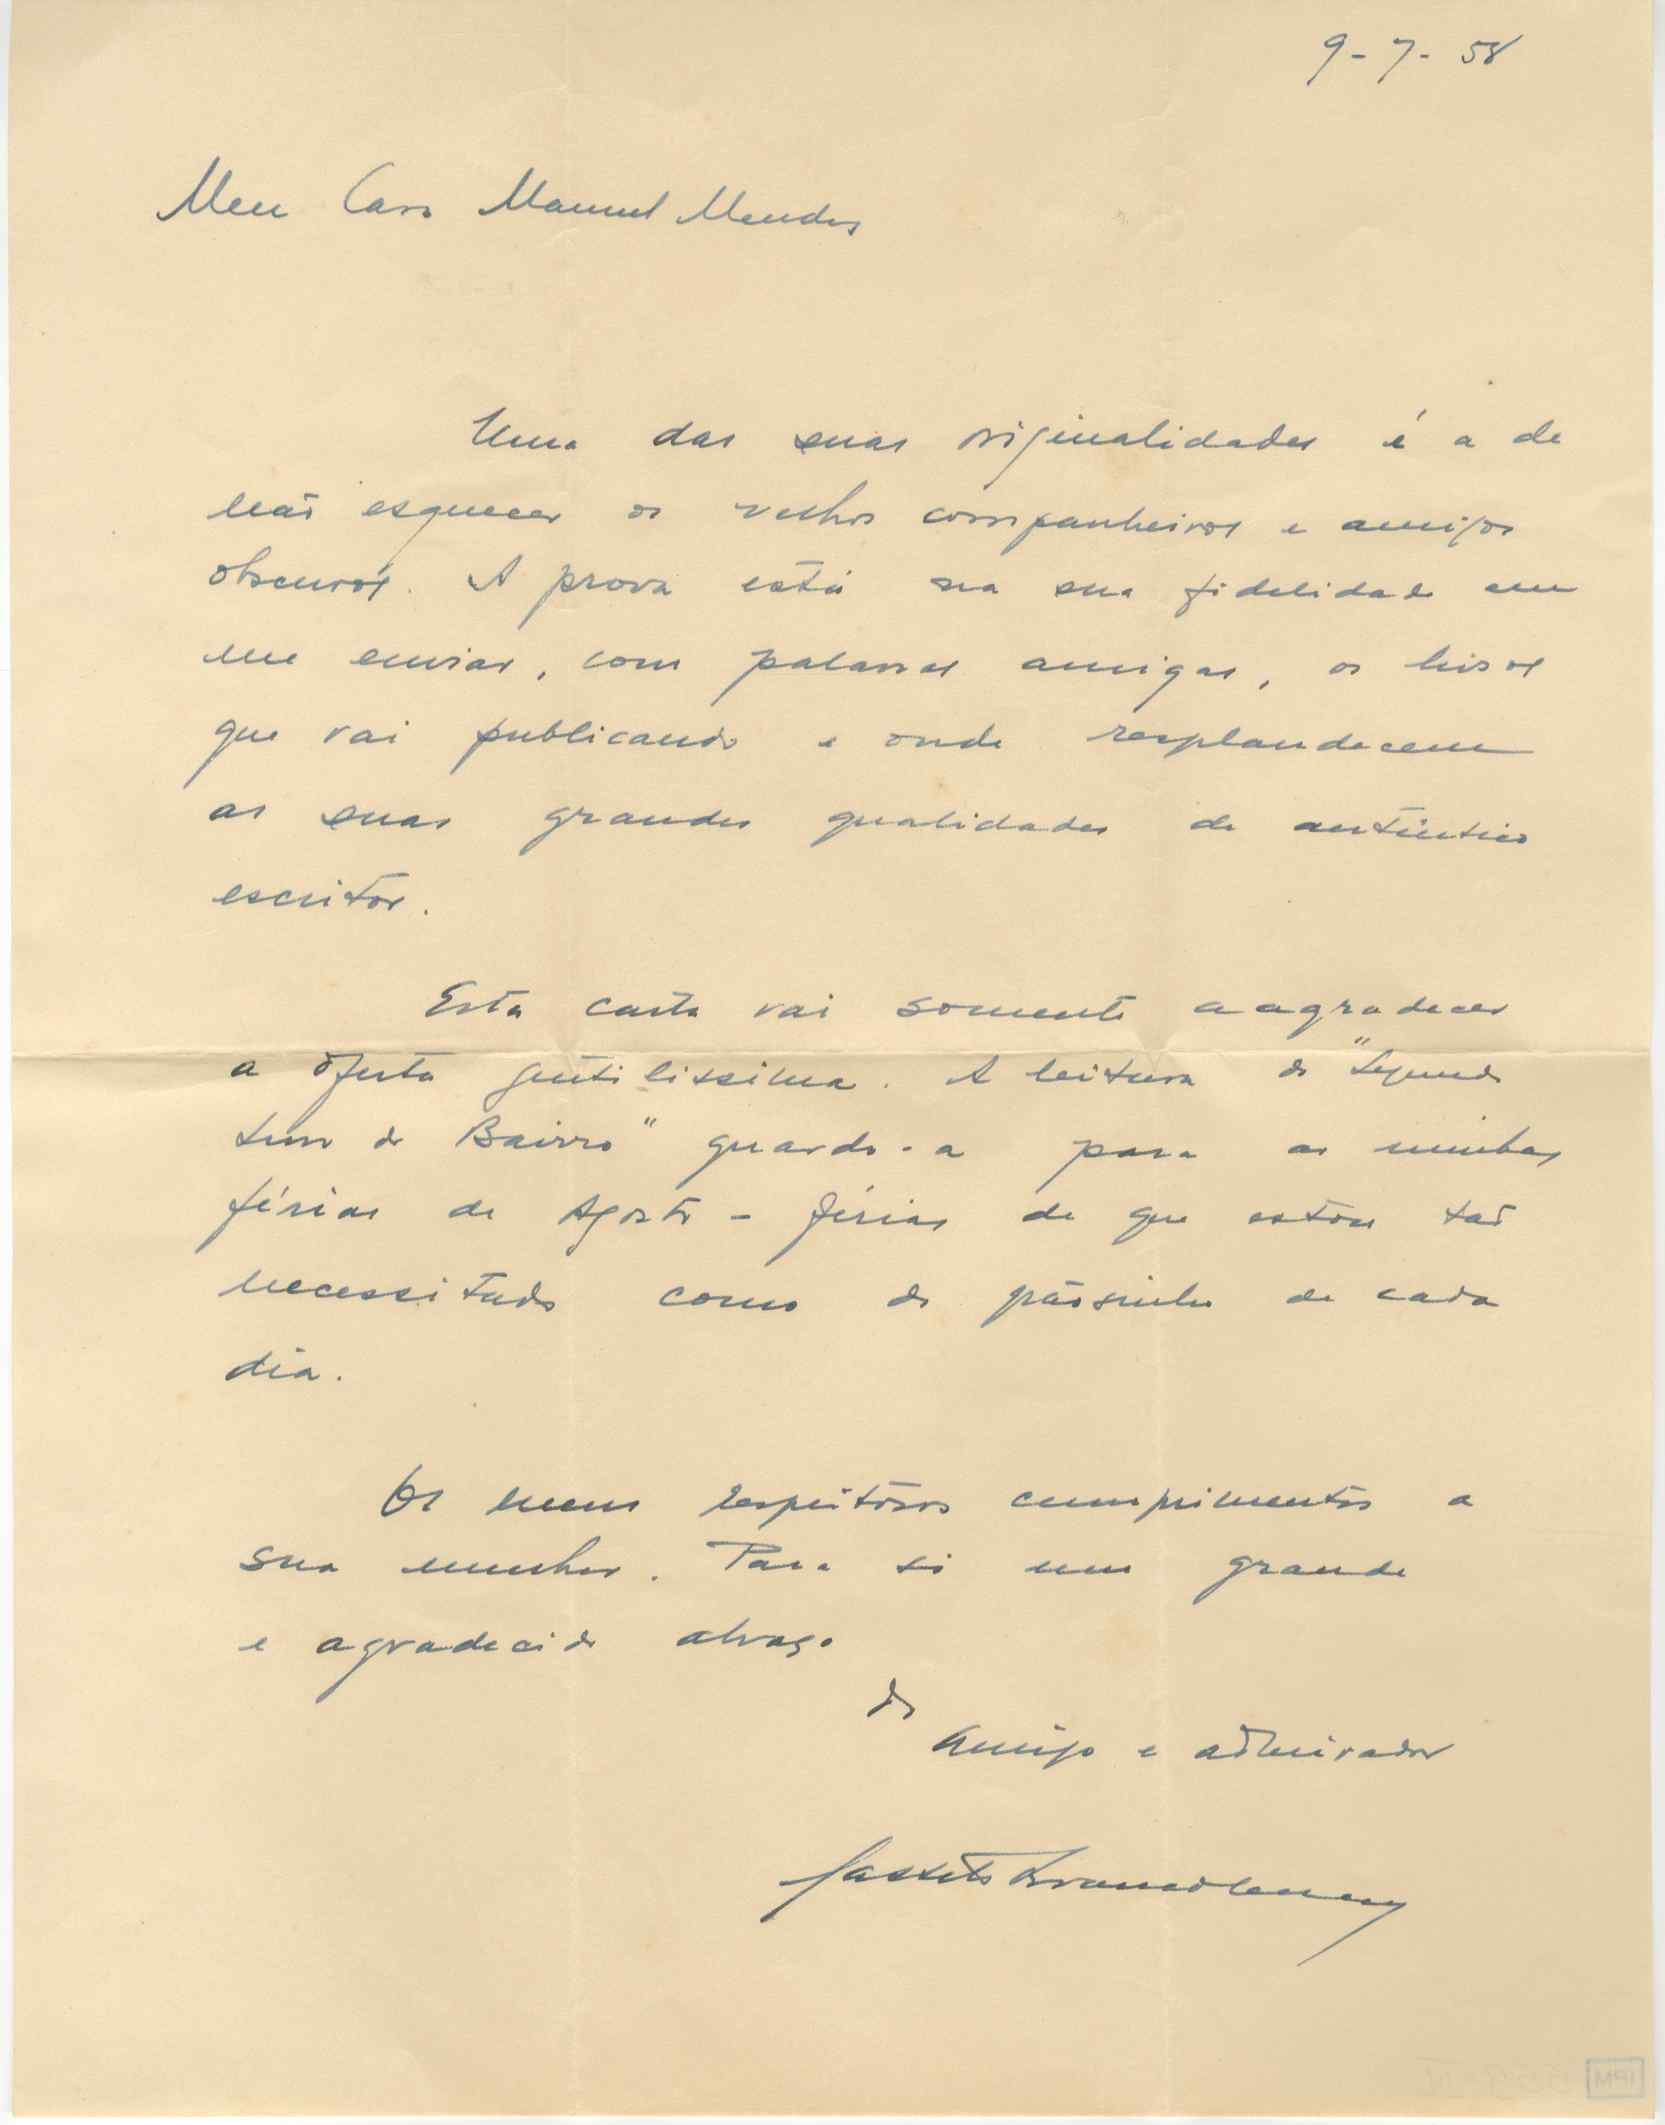 9-7-58
Meu Caro Manuel Mendes
Uma das suas originalidades é a de
não esquecer os velhos companheiros e amigos
obscuros. A prova está na sua fidelidade em
me enviar, com palavras amigas, os livros
que vai publicando e onde resplandecem
as suas grandes qualidades de autêntico
escritor.
Esta carta vai somente a agradecer
a oferta gentilissima. A leitura do "Segundo
livro do Bairro" guardo-a para as minhas
férias de Agosto - férias de que estou tão
necessitado como do pãosinho de cada
dia.
Os meus respeitosos cumprimentos a
sua mulher. Para si um grande
e agradecido abraço
do
amigo e admirador
IPM